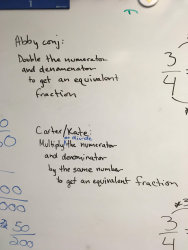 Abby conj:
Double the numerator
and denomenator
to get an equivalent
fraction
3
4
Carter/Kate:
or divide
Multiply the numerator
and denominator
by the same number
to get an equivalent fraction
50
200
3
4